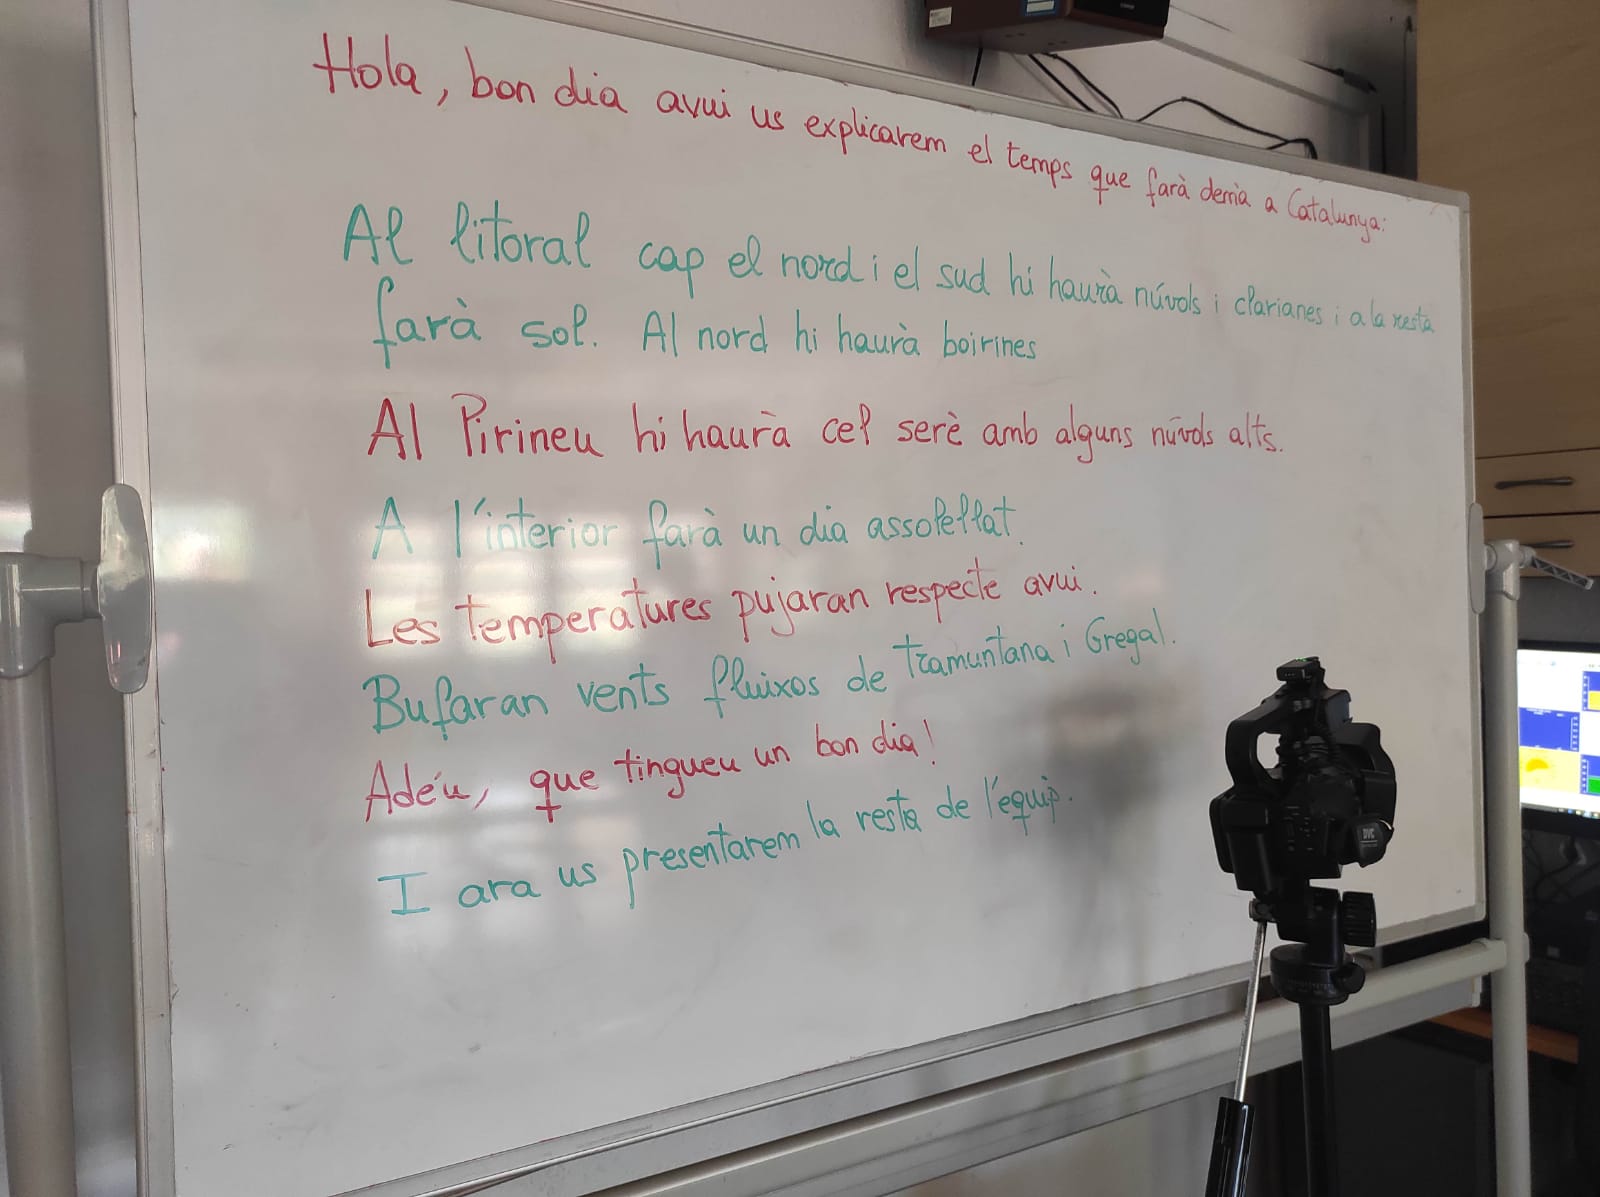 Hola, bon dia avui us explicarem el temps que farà demà a Catalunya:
Al litoral cap el nord i el sud hi haurà núvols i clarianes i a la resta
farà sol. Al nord hi haurà boirines
Al Pirineu hi haurà cel serè amb alguns núvols alts.
A l'interior farà un dia assolellat.
Les temperatures pujaran respecte avui.
Bufaran vents fluixos de tramuntana i Gregal.
Adéu, que tingueu un bon dia!
I ara us presentarem la resta de l'equip.
DVC